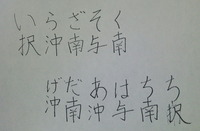 いらざそく
択沖南与南
げだあはちち
沖南沖与南択